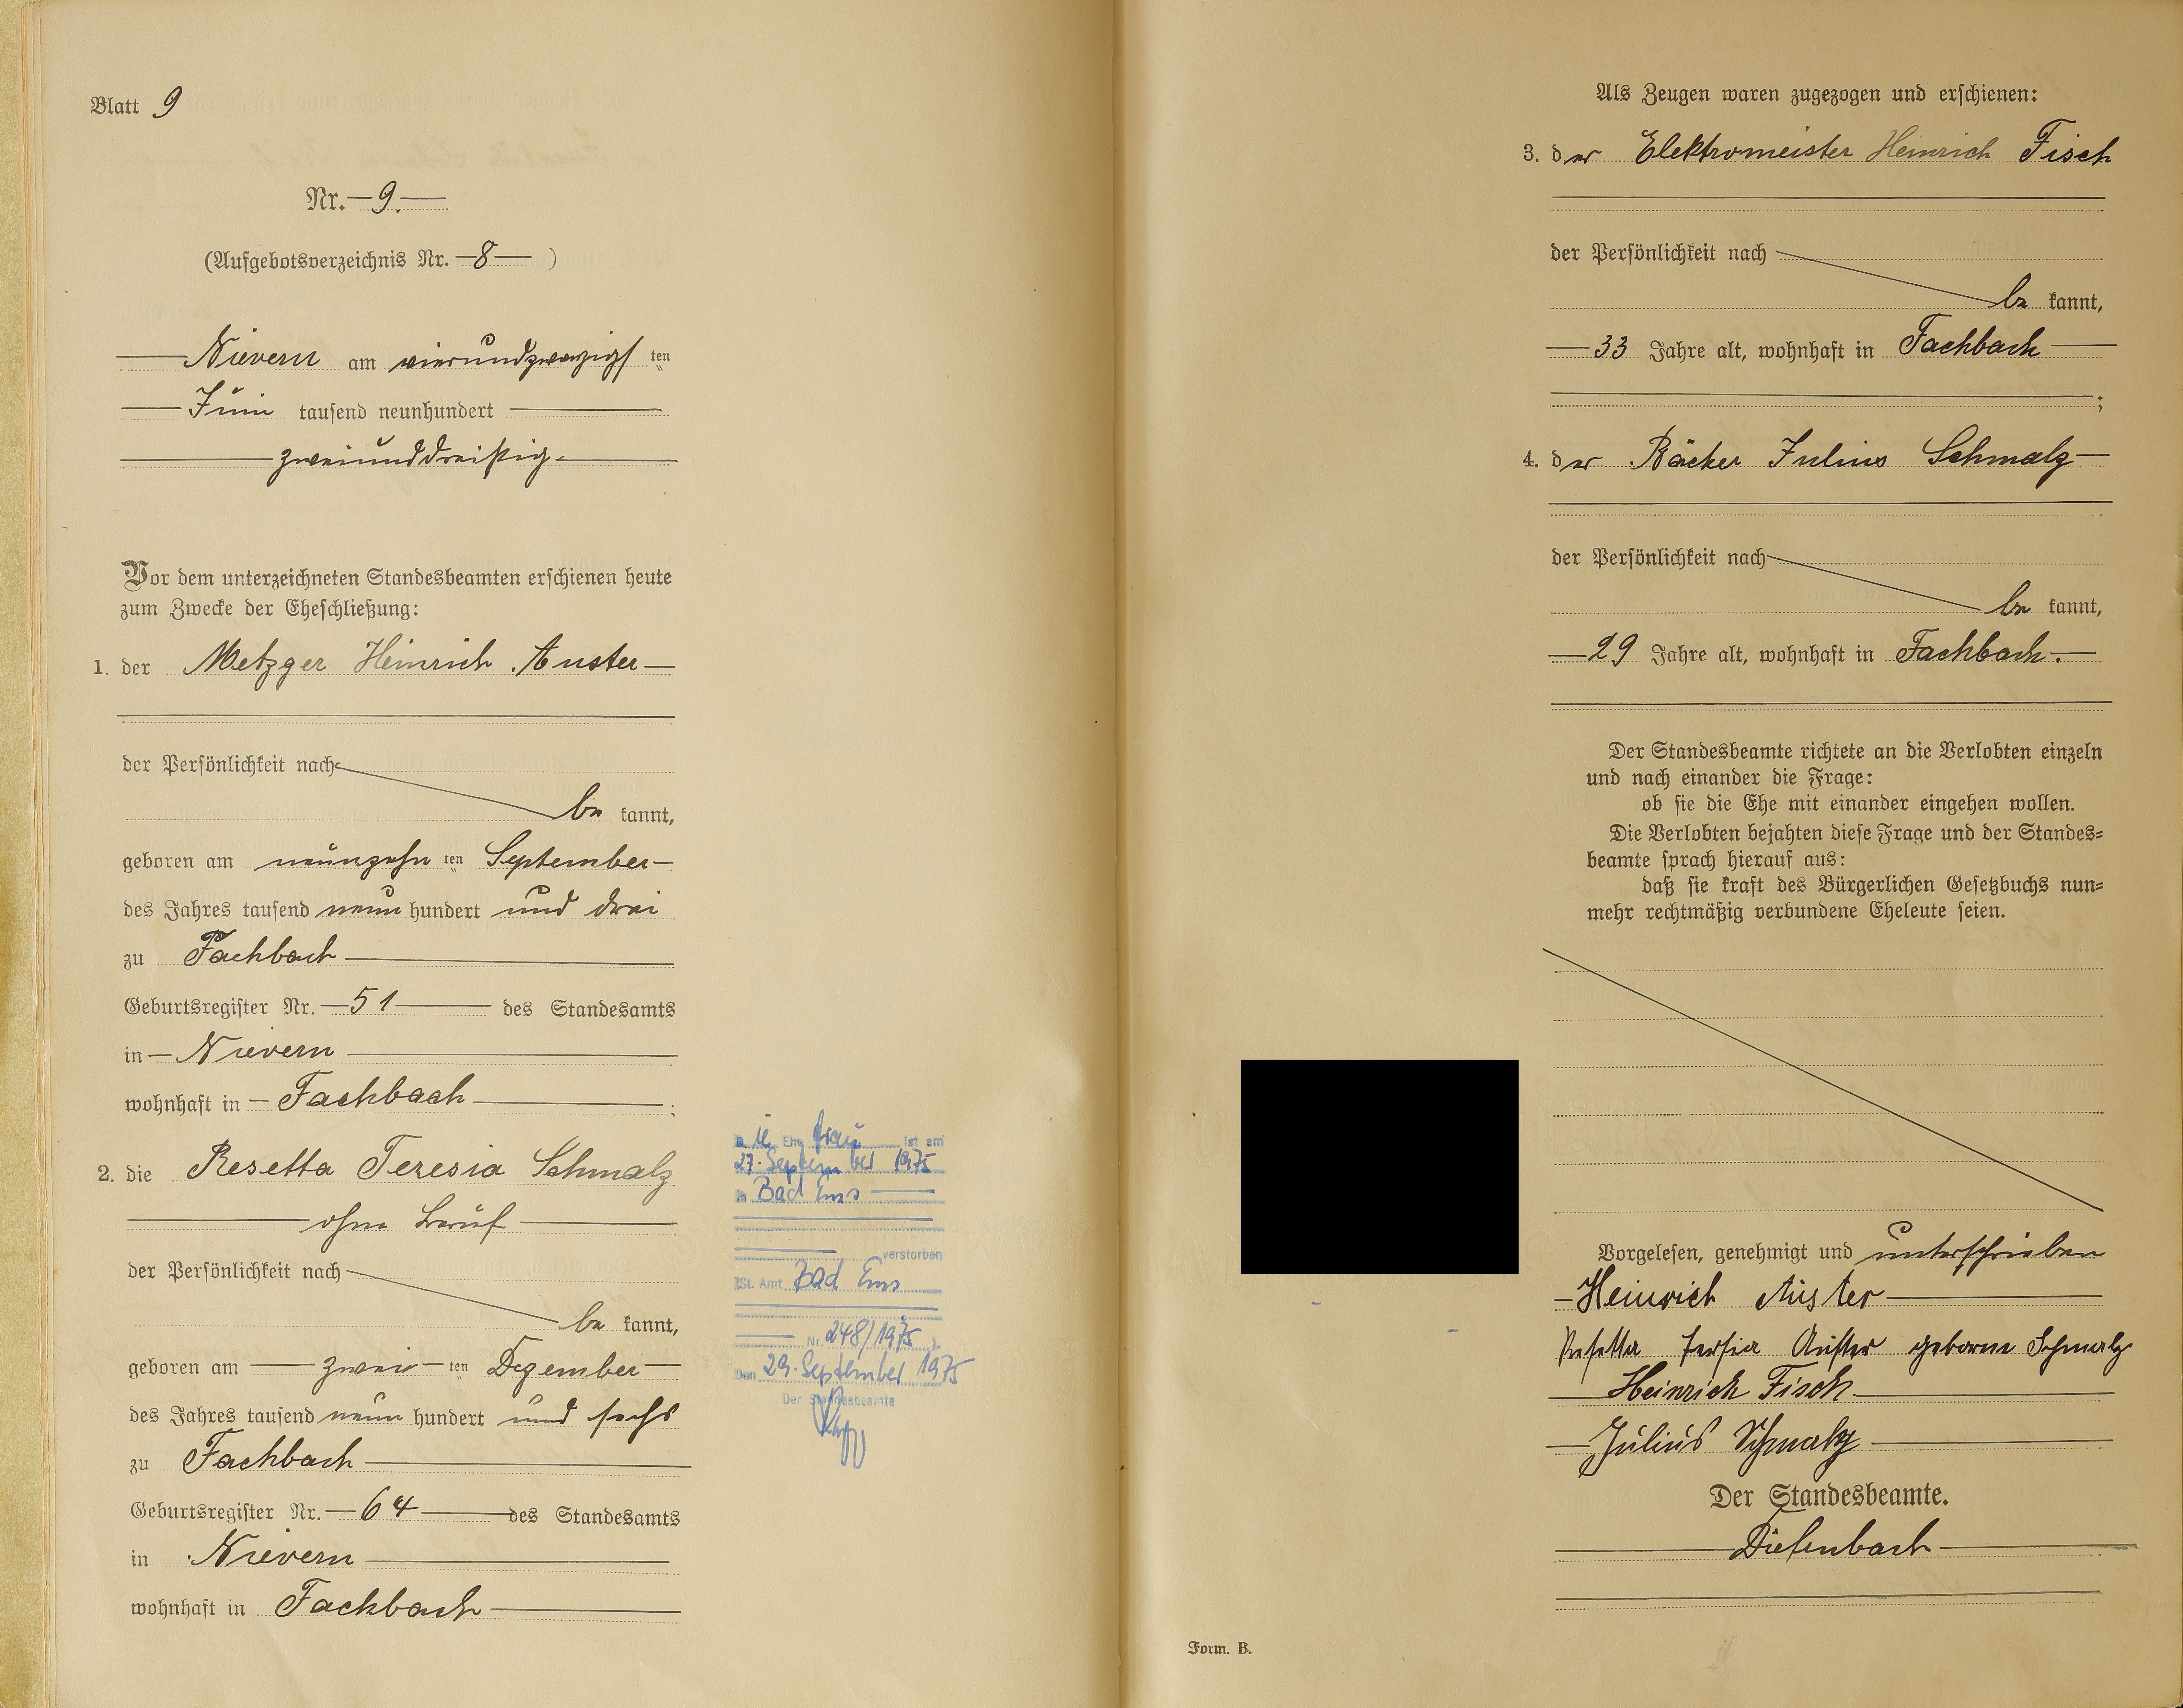 Blatt 9
Nr. 9.
(Aufgebotsverzeichnis Nr. 8 )
Nievern am vierundzwanzigsten
Juni tausend neunhundert
zweiunddreißig.
Vor dem unterzeichneten Standesbeamten erschienen heute
zum Zwecke der Eheschließung:
1. der Metzger Heinrich Auster
der Persönlichkeit nach
be kannt,
geboren am neunzehn ten September
des Jahres tausend neun hundert und drei
zu Fachbach
Geburtsregister Nr. 51 des Standesamts
in Nievern
wohnhaft in Fachbach ;
2. die Resetta Teresia Schmalz
ohne Beruf
der Persönlichkeit nach
be kannt,
geboren am zwei ten Dezember
des Jahres tausend neun hundert und sechs
zu Fachbach
Geburtsregister Nr. 64 des Standesamts
in Nievern
wohnhaft in Fachbach
Die Ehefrau ist am
27. September 1975
in Bad Ems
verstorben
(St. Amt Bad Ems
Nr. 248/1975 ).
Den 29. September 1975
Der Standesbeamte
Als Zeugen waren zugezogen und erschienen:
3. der Elektromeister Heinrich Fisch
der Persönlichkeit nach
be kannt,
33 Jahre alt, wohnhaft in Fachbach
;
4. der Bäcker Julius Schmalz
der Persönlichkeit nach
be kannt,
29 Jahre alt, wohnhaft in Fachbach.
Der Standesbeamte richtete an die Verlobten einzeln
und nach einander die Frage:
ob sie die Ehe mit einander eingehen wollen.
Die Verlobten bejahten diese Frage und der Standes=
beamte sprach hierauf aus:
daß sie kraft des Bürgerlichen Gesetzbuchs nun=
mehr rechtmäßig verbundene Eheleute seien.
Vorgelesen, genehmigt und unterschrieben
Heinrich Auster
Resetta Tersia Auster geborne Schmalz
Heinrich Fisch
Julius Schmalz
Der Standesbeamte.
Diefenbach
Form. B.